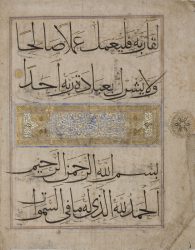 لقاء ربه فليعمل عملا صالحا
ولا يشرك بعبادة ربه احدا
بسم الله الرحمن الرحيم
الحمد لله الذي له ما في السموات